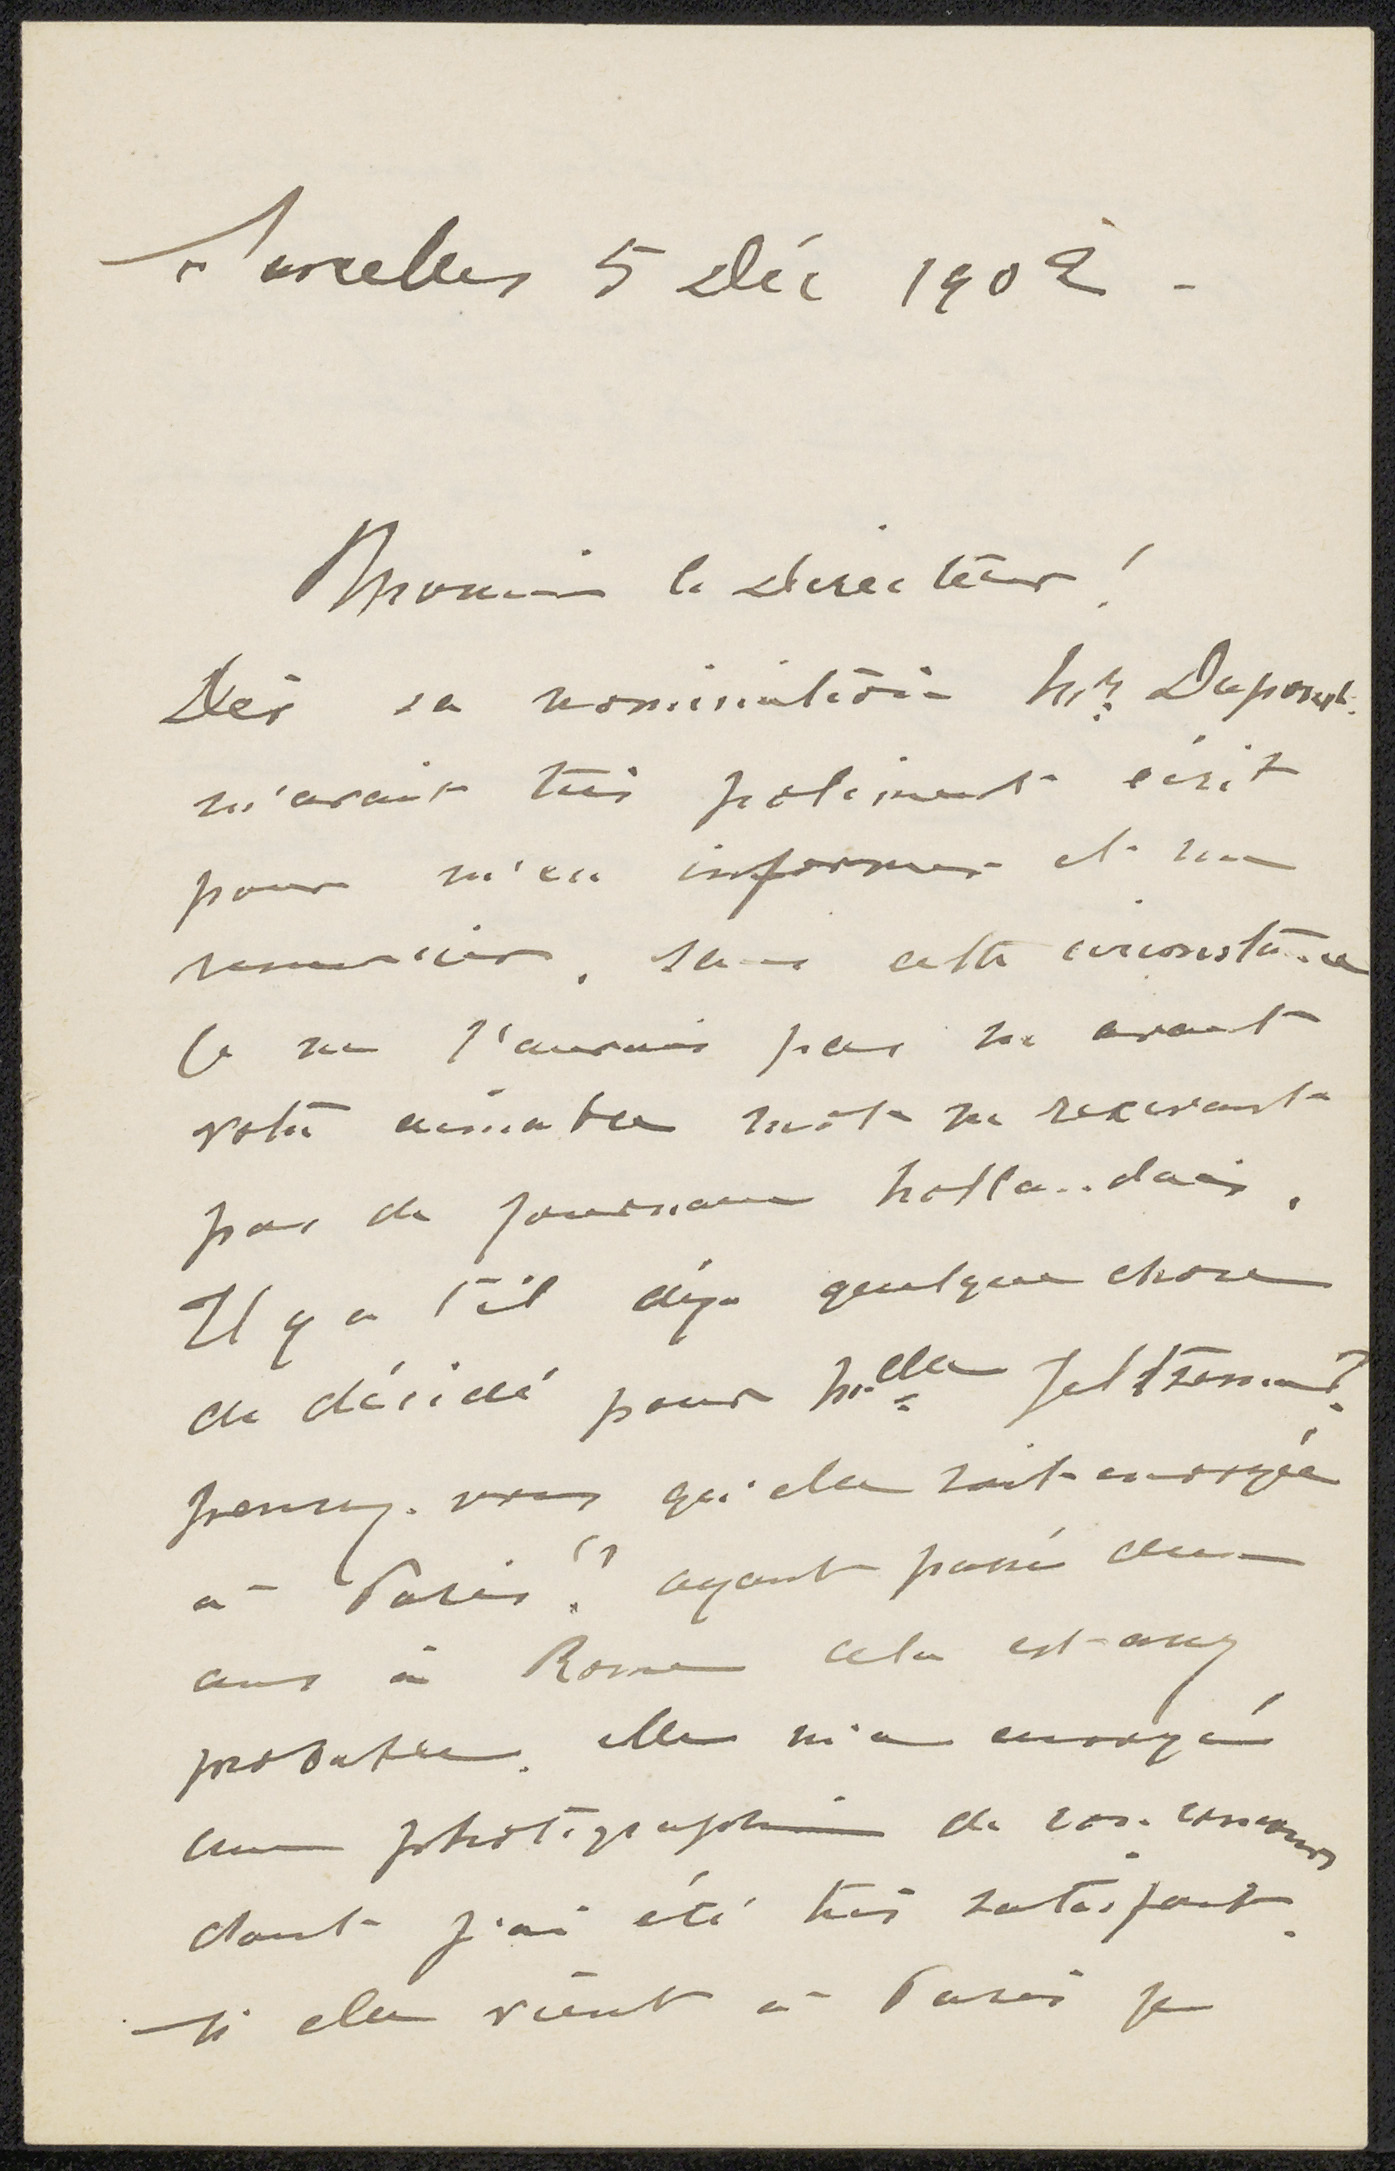 Sarcelles 5 Déc 1902 -
Monsieur le Directeur!
Dès sa nomination Mr. Dupont
m'avait très poliment écrit
pour m'en informer et me
remercier. sans cette circonstance
je ne l'aurais pas su avant
votre aimable mot ne recevant
pas de journaux hollandais.
Il y a t'il déja quelque chose
de décidé pour Melle
pensez-vous qu'elle soit envoyée
à Paris? ayant passé deux
ans à Rome cela est assez
probable. elle m'a envoyé
une photographie de son concours
dont j'ai été très satisfait.
si elle vient à Paris je